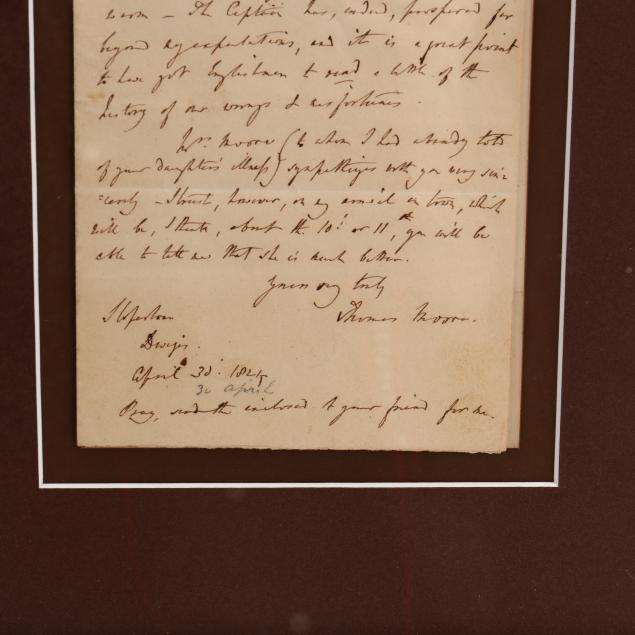 soon – The Captain has, indeed, prospered far
beyond my expectations, and it is a great point
to have got Englishmen to read a little of the
history of our wrongs & misfortunes.
Mrs. Moore (to whom I had already told
of your daughter's illness) sympathizes with you very sin-
=cerely – I trust, however, on my arrival in town, which
will be, I think, about the 10th or 11th, you will be
able to tell me that she is much better.
Yours very truly
Thomas Moore.
Sloperton
Devizes.
April 30. 1824
30 April
Pray, send the inclosed to your friend for me.